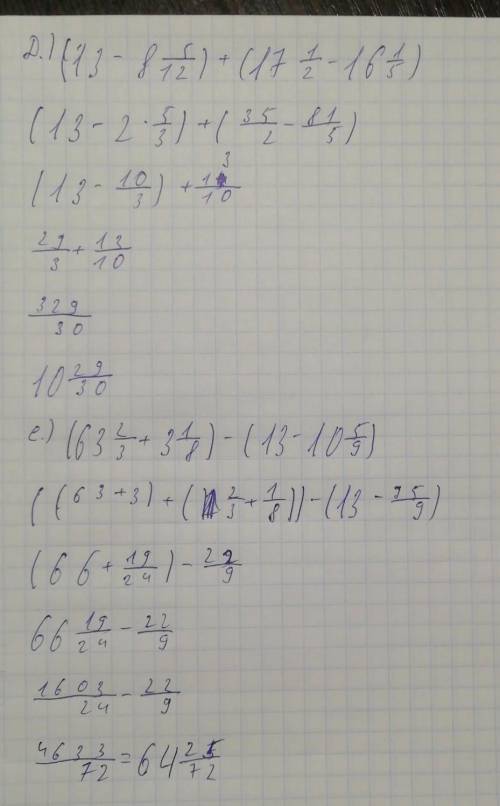 Д.) (13 - 8 5/12) + (17 1/2 - 16 1/5)
(13 - 2 · 5/3) + (35/2 - 81/5)
(13 - 10/3) + 13/10
29/3 + 13/10
329/30
10 29/30
е.) (63 2/3 + 3 1/8) - (13 - 10 5/9)
((63 + 3) + (2/3 + 1/8)) - (13 - 95/9)
(66 + 19/24) - 22/9
66 19/24 - 22/9
1603/24 - 22/9
4633/72 = 64 25/72